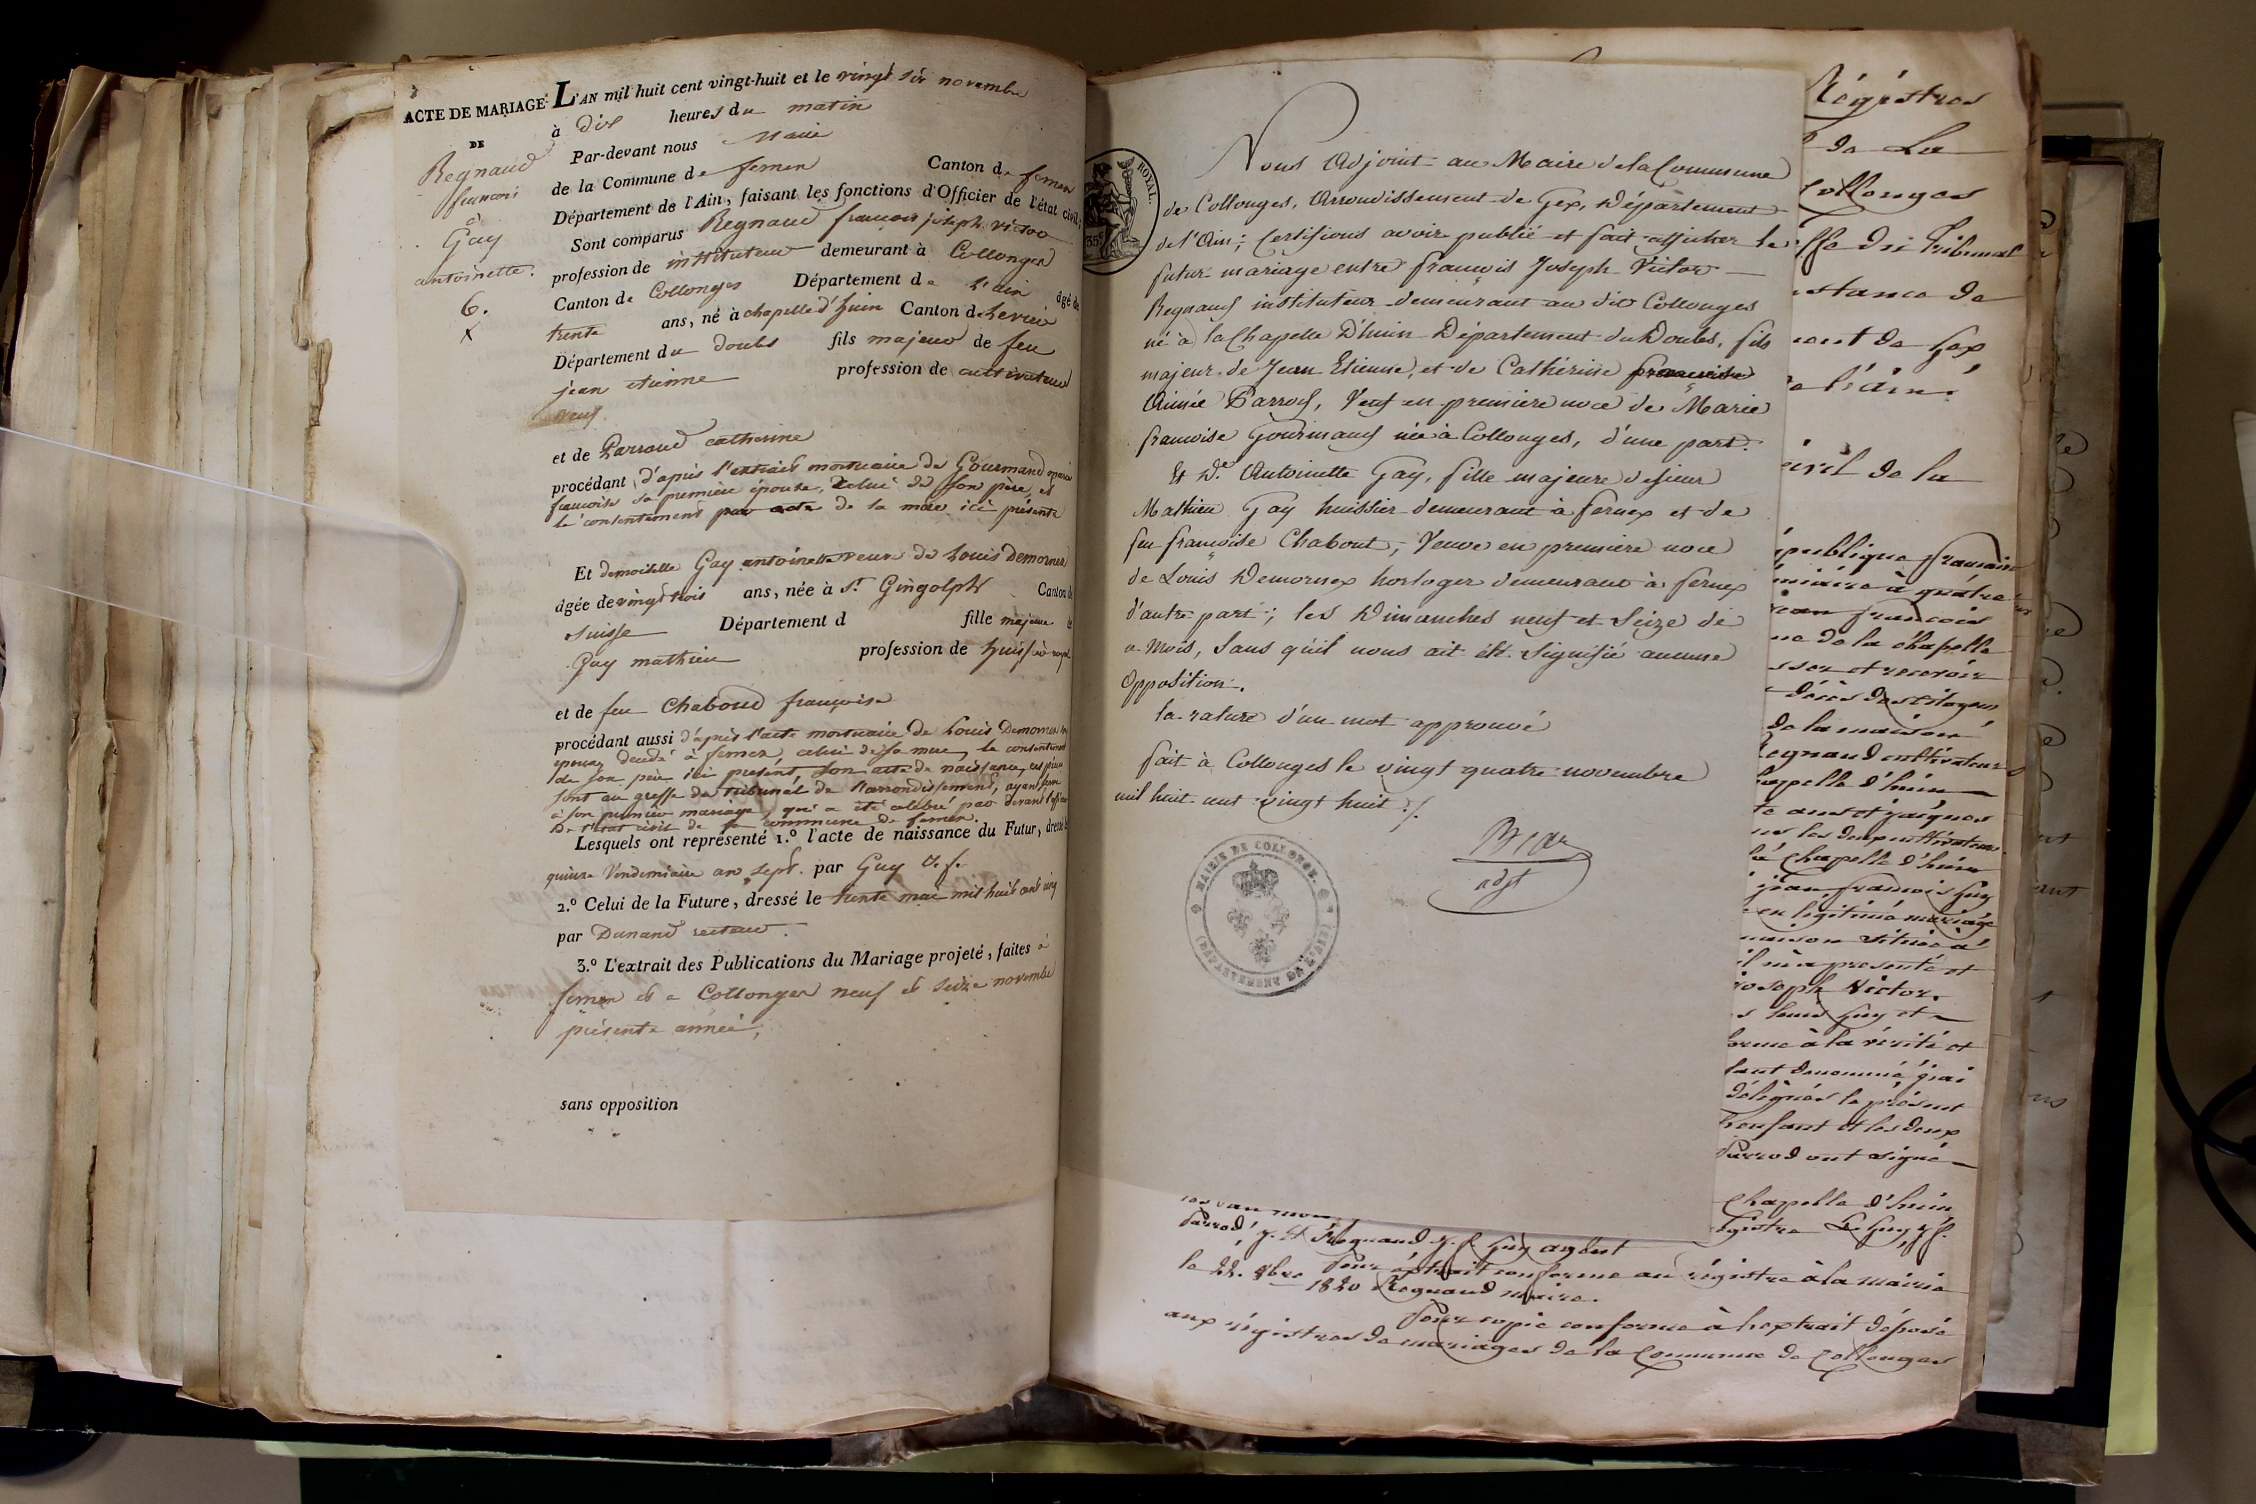 ACTE DE MARIAGE
DE
Regnaud
françois
à
Gay
antoinette.
6.
X
L'AN mil huit cent vingt-huit et le vingt six novembre
à dix heures du matin
Par-devant nous Maire
de la Commune de fernex Canton de fernex
Département de l'Ain, faisant les fonctions d'Officier de l'état civil;
Sont comparus Regnaud françois joseph victor
profession de instituteur demeurant à Collonges
Canton de Collonges Département de l'ain âgé de
trente ans, né à chapelle d'huin Canton de levier
Département du doubs fils majeur de feu
jean etienne profession de cultivateur
et de Parraud catherine
procédant d'après l'extrait mortuaire de Gourmand marie
françoise sa première épouse, celui de son père, et
le consentement par acte de la mère ici présente
Et demoiselle Gay antoinette veuve de Louis Demornex
âgée de vingt trois ans, née à St Gingolph Canton de
suisse Département d fille majeure de
Gay mathieu profession de huissier royal
et de feu Chaboud françoise
procédant aussi d'après l'acte mortuaire de Louis Demornex son
époux, décédé à fernex, celui de sa mère, le consentement
de son père ici présent, son acte de naissance, ces pièces
sont au greffe du tribunal de l'arrondissement, ayant servi
à son premier mariage, qui a été célébré par devant l'officier
de l'état civil de la commune de fernex.
Lesquels ont représenté 1.º l'acte de naissance du Futur, dressé le
quinze Vendemiaire an sept. par Guy V. f.
2.º Celui de la Future, dressé le trente mai mil huit cent cinq
par Dunand recteur.
3.º L'extrait des Publications du Mariage projeté, faites à
fernex et a Collonges neuf et seize novembre
présente année,
sans opposition
ROYAL
35
Nous Adjoint au Maire de la Commune
de Collonges, Arrondissement de Gex, Département
de l'Ain; Certifions avoir publié et fait afficher le
futur mariage entre françois Joseph Victor
Regnaud instituteur demeurant au dit Collonges
né à la Chapelle D'huin Département du Doubs, fils
majeur de Jean Etienne, et de Cathérine francoise
Aimée Parrod, Veuf en première noce de Marie
francoise Gourmand née à Collonges, d'une part.
Et De. Antoinette Gay, fille majeure de sieur
Mathieu Gay huissier demeurant à fernex et de
feu francoise Chabout, Veuve en premiere noce
de Louis Demornex horloger demeurant à fernex
d'autre part; les Dimanches neuf et Seize de
ce Mois, Sans qu'il nous ait été Signifié aucune
Opposition.
la rature d'un mot approuvé
fait à Collonges le vingt quatre novembre
mil huit cent vingt huit ./.
adjt
MAIRIE DE COLLONGE.
(DÉPARTEMENT DE L'AIN)
Régistres
de La
Collonges
ffe du Tribunal
stance de
ment de Gex
de l'ain.
civil de la
épublique francaise
à quatre
jean francois
de la chapelle
et recevoir
décès des citoyens
de la maison
Regnaud cultivateur
chapelle d'huin
les deux cultivateurs
la chapelle d'huin
jean francois Guy
en légitime mariage
maison située à
il m'a présenté et
joseph Victor.
louis Guy et
forme à la vérité et
dénommé j'ai
délégués le présent
l'enfant et les deux
Parrod ont signé
Chapelle d'huin
Parrod, j. Regnaud j. f. Guy agent
Pour extrait conforme au régistre à la mairie
le 22. 8bre 1820 Regnaud maire.
Pour copie conforme à l'extrait déposé
aux régistres de mariages de la Commune de Collonges